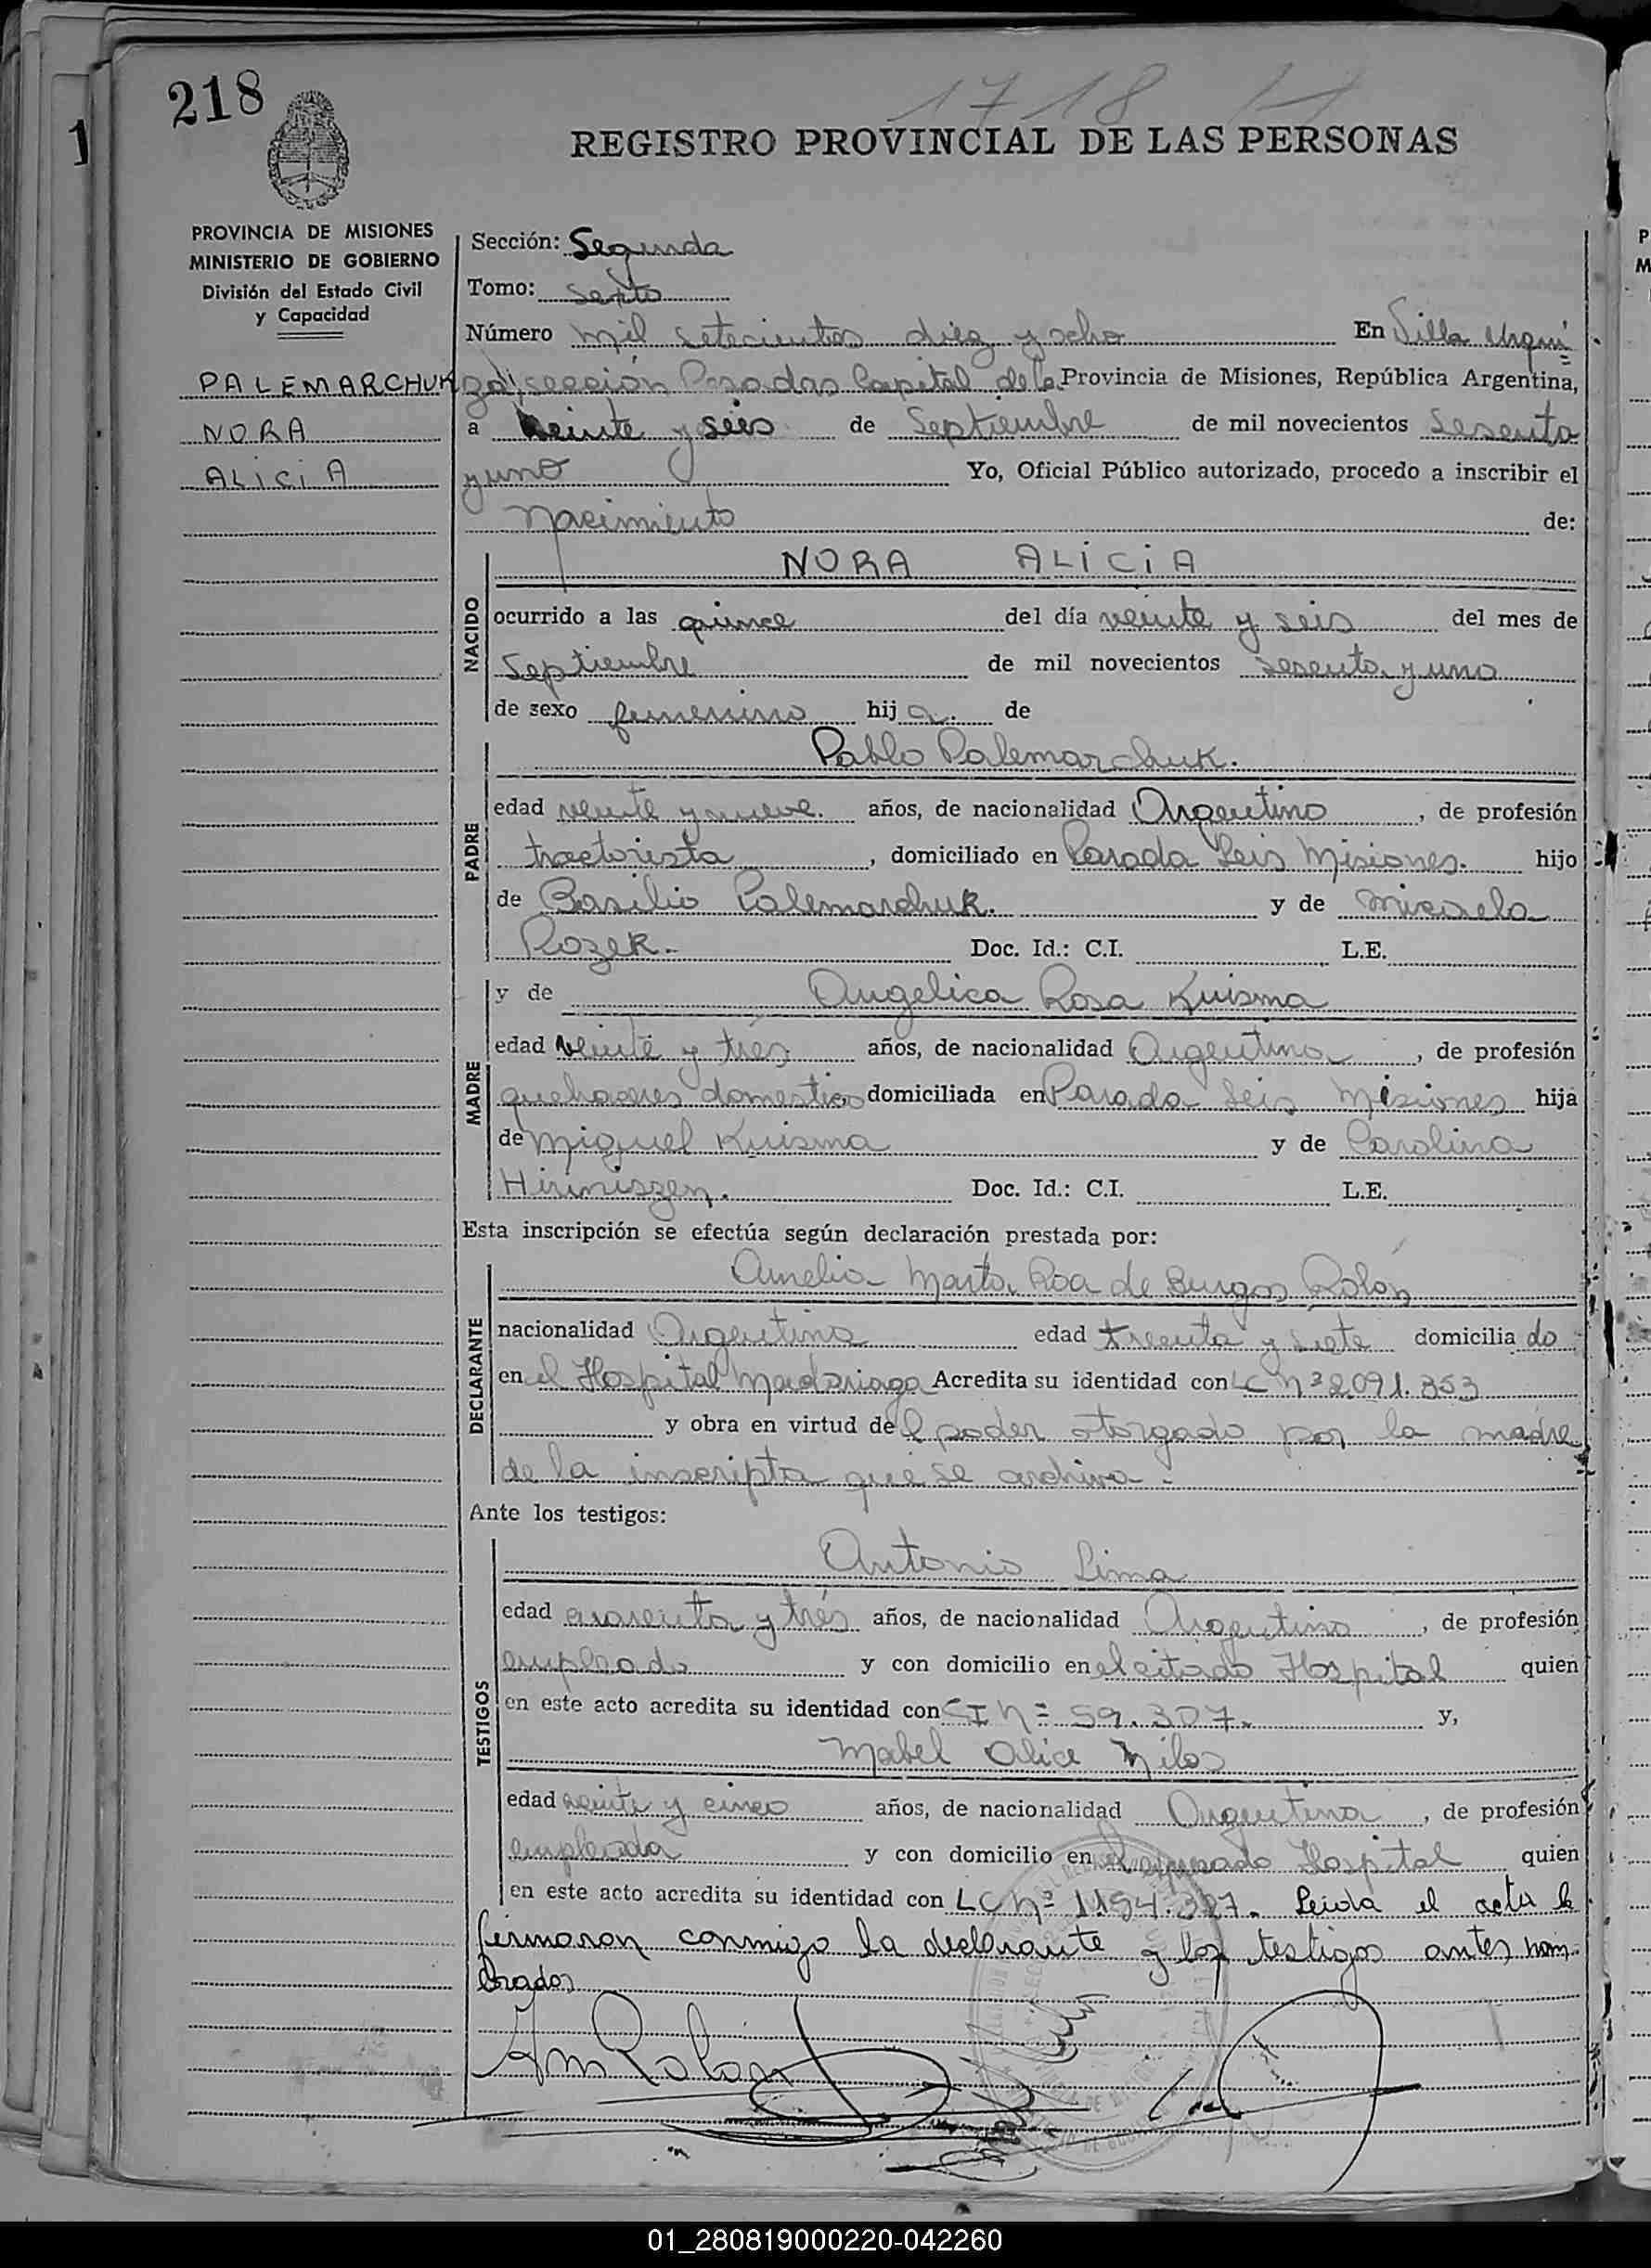 218
1718
1
REGISTRO PROVINCIAL DE LAS PERSONAS
PROVINCIA DE MISIONES
MINISTERIO DE GOBIERNO
División del Estado Civil
y Capacidad
PALEMARCHUK
NORA
ALICIA
Sección: Segunda
Tomo: Sexto
Número mil setecientos diez y ocho En Villa Urqui
za sección Posadas Capital de la Provincia de Misiones, República Argentina,
a veinte y seis de Septiembre de mil novecientos sesenta
y uno Yo, Oficial Público autorizado, procedo a inscribir el
Nacimiento de:
NACIDO
NORA ALICIA
ocurrido a las quince del día veinte y seis del mes de
Septiembre de mil novecientos sesenta y uno
de sexo femenino hija. de
PADRE
Pablo Palemarchuk.
edad veinte y nueve. años, de nacionalidad Argentino, de profesión
tractorista, domiciliado en Parada Seis Misiones. hijo
de Basilio Palemarchuk. y de Micaela
Rozek.- Doc. Id.: C.I. L.E.
MADRE
y de Angelica Rosa Kuisma
edad veinte y tres años, de nacionalidad Argentina, de profesión
quehaceres domesticos domiciliada en Parada Seis Misiones hija
de Miguel Kuisma y de Carolina
Hiriniszen. Doc. Id.: C.I. L.E.
Esta inscripción se efectúa según declaración prestada por:
DECLARANTE
Amelia Marta Roa de Burgos Rolón
nacionalidad Argentina edad treinta y siete domiciliado
en el Hospital Madariaga Acredita su identidad con LC nº 2.091.353
y obra en virtud del poder otorgado por la madre
de la inscripta que se archiva.-
Ante los testigos:
TESTIGOS
Antonio Lima
edad cuarenta y tres años, de nacionalidad Argentino, de profesión
empleado y con domicilio en el citado Hospital quien
en este acto acredita su identidad con CI nº 59.307. y,
Mabel Alice Milos
edad veinte y cinco años, de nacionalidad Argentina, de profesión
empleada y con domicilio en el Hospital quien
en este acto acredita su identidad con LC nº 1.194.327. Leida el acta la
firmaron conmigo la declarante y los testigos antes nom-
brados
Am Rolon
01_280819000220-042260